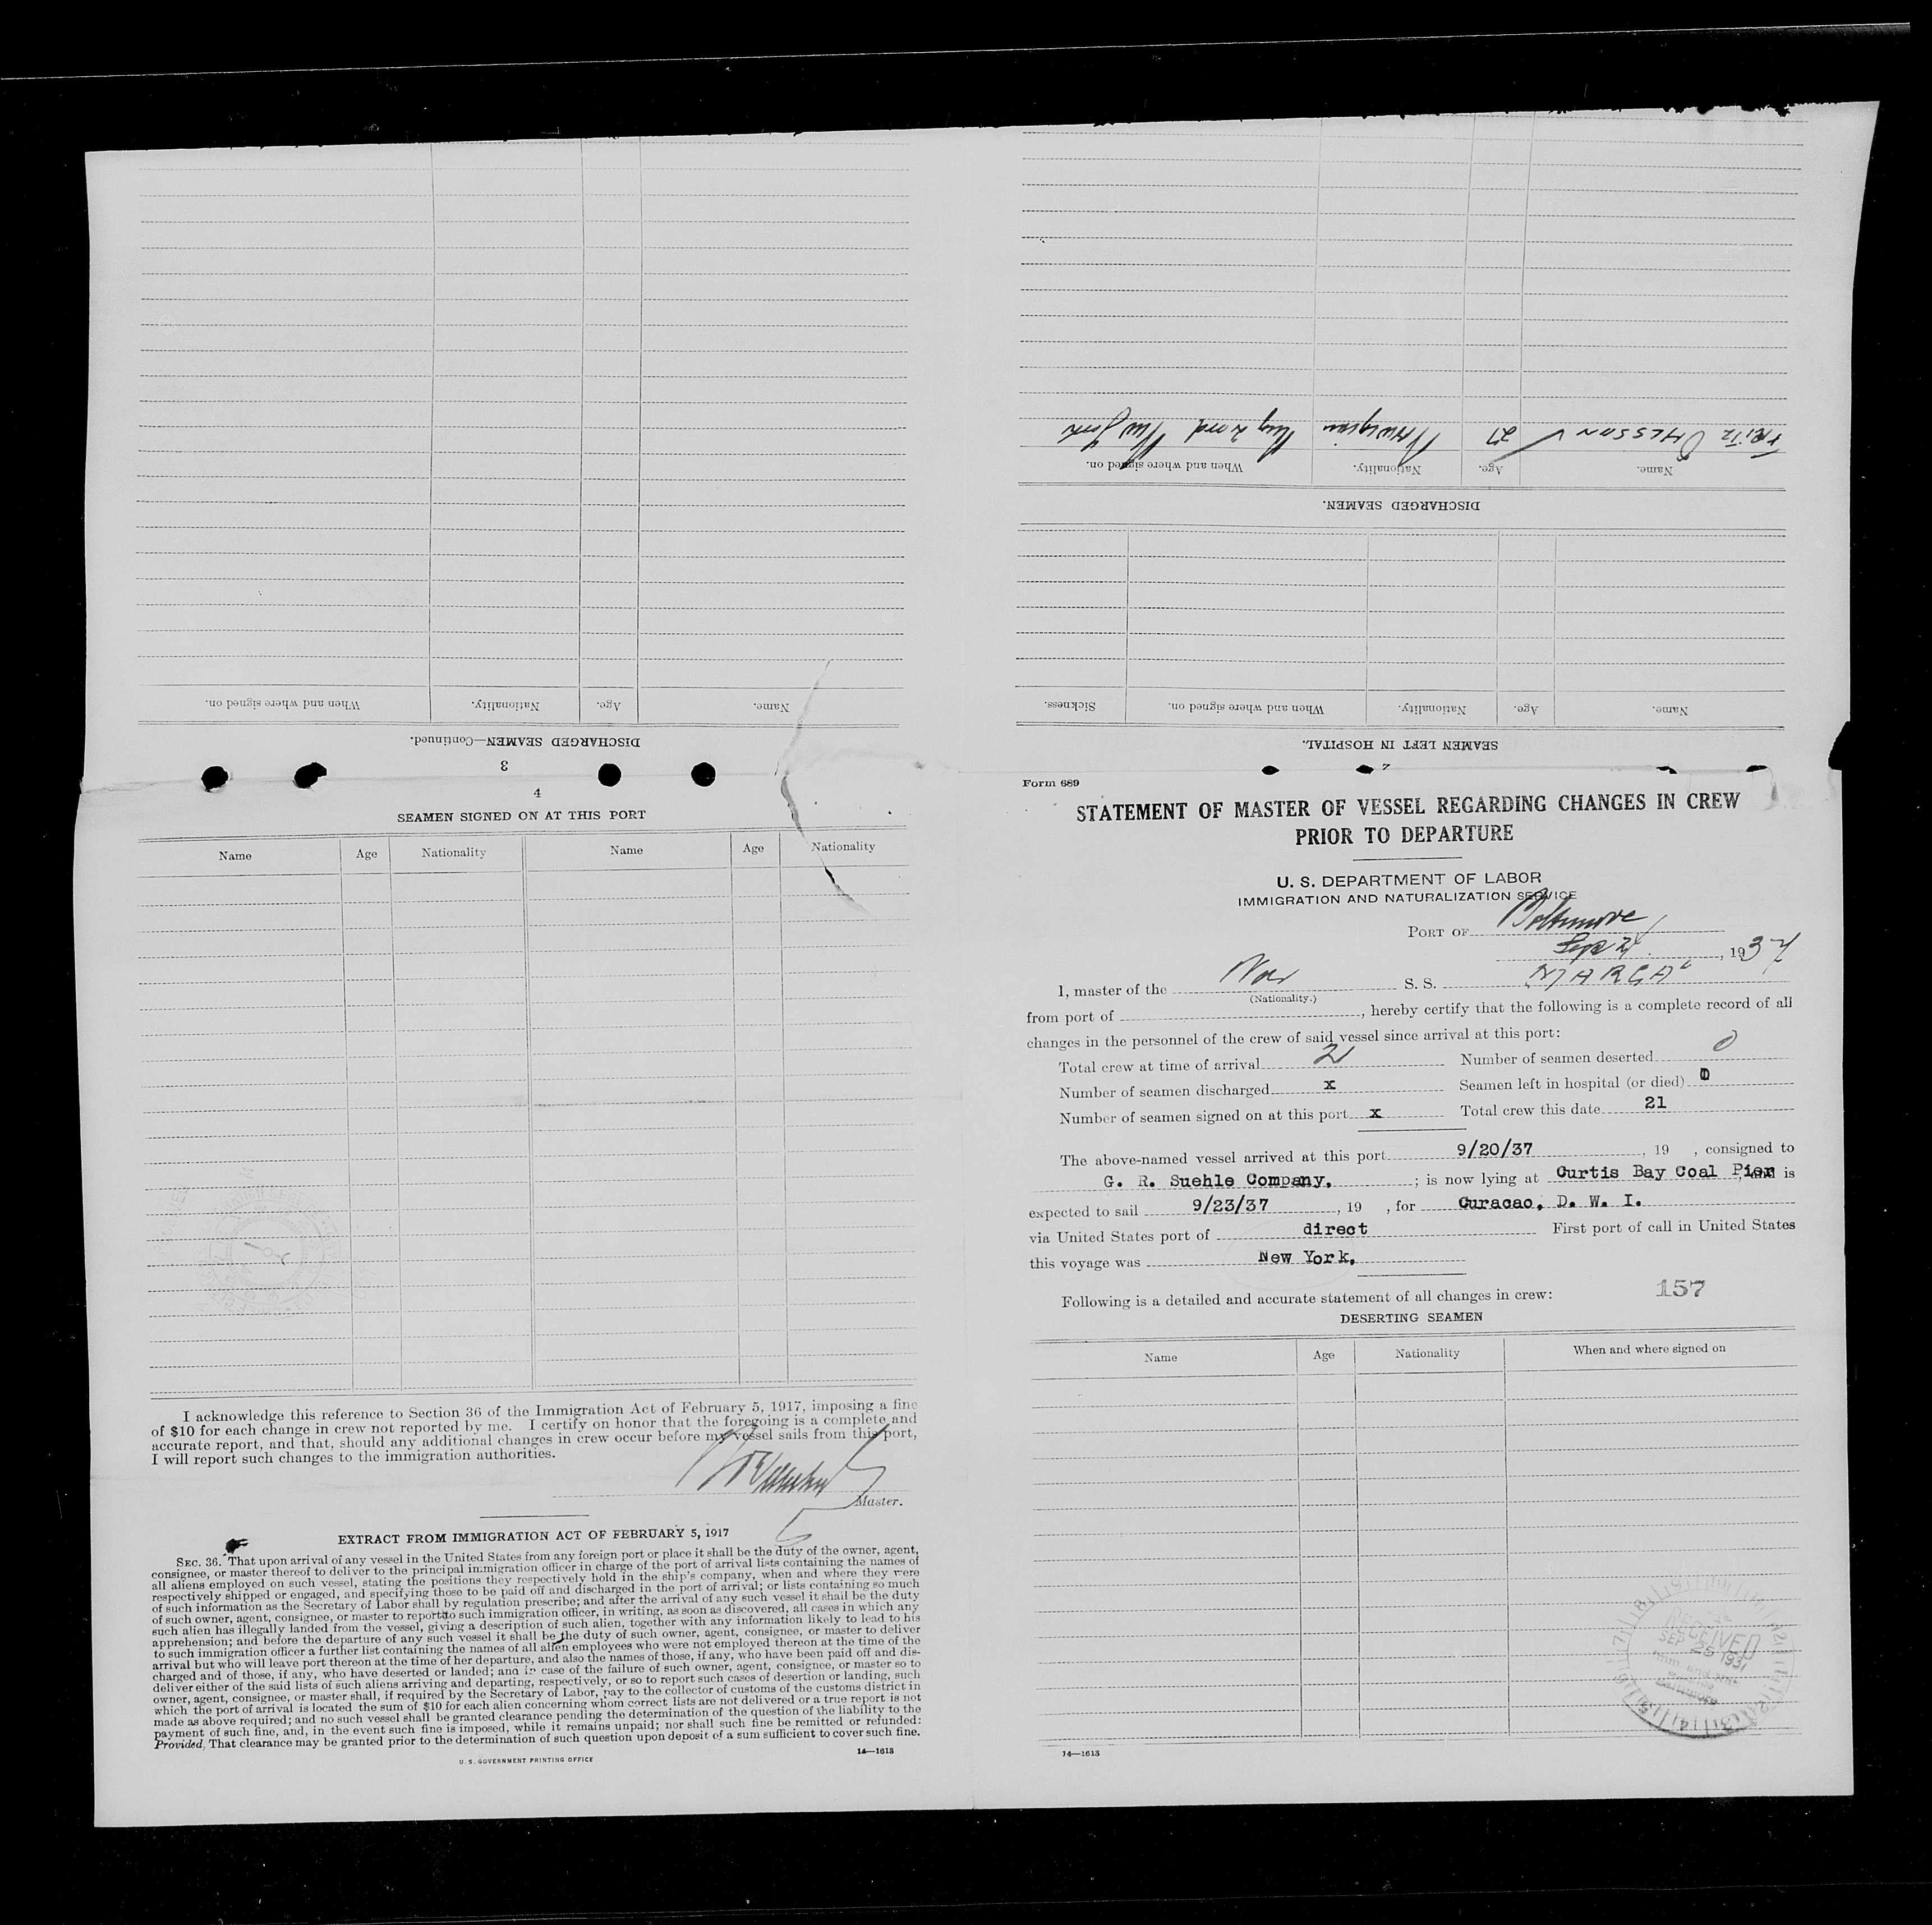 Form 689
STATEMENT OF MASTER OF VESSEL REGARDING CHANGES IN CREW
PRIOR TO DEPARTURE
U. S. DEPARTMENT OF LABOR
IMMIGRATION AND NATURALIZATION SERVICE
PORT OF Baltimore
Sep, 1937
I, master of the Nor S. S. "MARGA"
(Nationality.)
from port of , hereby certify that the following is a complete record of all
changes in the personnel of the crew of said vessel since arrival at this port:
Total crew at time of arrival Number of seamen deserted 0
Number of seamen discharged x Seamen left in hospital (or died)
Number of seamen signed on at this port x Total crew this date 21
The above-named vessel arrived at this port 9/20/37, 19 , consigned to
G. R. Suehle Company. ; is now lying at Curtis Bay Coal Pier, and is
expected to sail 9/23/37, 19 , for Curacao, D. W. I.
via United States port of direct First port of call in United States
this voyage was New York.
Following is a detailed and accurate statement of all changes in crew: 157
DESERTING SEAMEN
Name Age Nationality When and where signed on
RECEIVED
SEP 25 1937
Baltimore
14—1613
2
SEAMEN LEFT IN HOSPITAL.
Name. Age. Nationality. When and where signed on. Sickness.
DISCHARGED SEAMEN.
Name. Age. Nationality. When and where signed on.
FRITZ OHLSSON 27 Norwegian Aug 2nd New York
3
DISCHARGED SEAMEN—Continued.
Name. Age. Nationality. When and where signed on.
4
SEAMEN SIGNED ON AT THIS PORT
Name Age Nationality Name Age Nationality
I acknowledge this reference to Section 36 of the Immigration Act of February 5, 1917, imposing a fine
of $10 for each change in crew not reported by me. I certify on honor that the foregoing is a complete and
accurate report, and that, should any additional changes in crew occur before my vessel sails from this port,
I will report such changes to the immigration authorities.
Master.
EXTRACT FROM IMMIGRATION ACT OF FEBRUARY 5, 1917
SEC. 36. That upon arrival of any vessel in the United States from any foreign port or place it shall be the duty of the owner, agent,
consignee, or master thereof to deliver to the principal immigration officer in charge of the port of arrival lists containing the names of
all aliens employed on such vessel, stating the positions they respectively hold in the ship's company, when and where they were
respectively shipped or engaged, and specifying those to be paid off and discharged in the port of arrival; or lists containing so much
of such information as the Secretary of Labor shall by regulation prescribe; and after the arrival of any such vessel it shall be the duty
of such owner, agent, consignee, or master to report to such immigration officer, in writing, as soon as discovered, all cases in which any
such alien has illegally landed from the vessel, giving a description of such alien, together with any information likely to lead to his
apprehension; and before the departure of any such vessel it shall be the duty of such owner, agent, consignee, or master to deliver
to such immigration officer a further list containing the names of all alien employees who were not employed thereon at the time of the
arrival but who will leave port thereon at the time of her departure, and also the names of those, if any, who have been paid off and dis-
charged and of those, if any, who have deserted or landed; and in case of the failure of such owner, agent, consignee, or master so to
deliver either of the said lists of such aliens arriving and departing, respectively, or so to report such cases of desertion or landing, such
owner, agent, consignee, or master shall, if required by the Secretary of Labor, pay to the collector of customs of the customs district in
which the port of arrival is located the sum of $10 for each alien concerning whom correct lists are not delivered or a true report is not
made as above required; and no such vessel shall be granted clearance pending the determination of the question of the liability to the
payment of such fine, and, in the event such fine is imposed, while it remains unpaid; nor shall such fine be remitted or refunded:
Provided, That clearance may be granted prior to the determination of such question upon deposit of a sum sufficient to cover such fine.
U. S. GOVERNMENT PRINTING OFFICE 14—1613